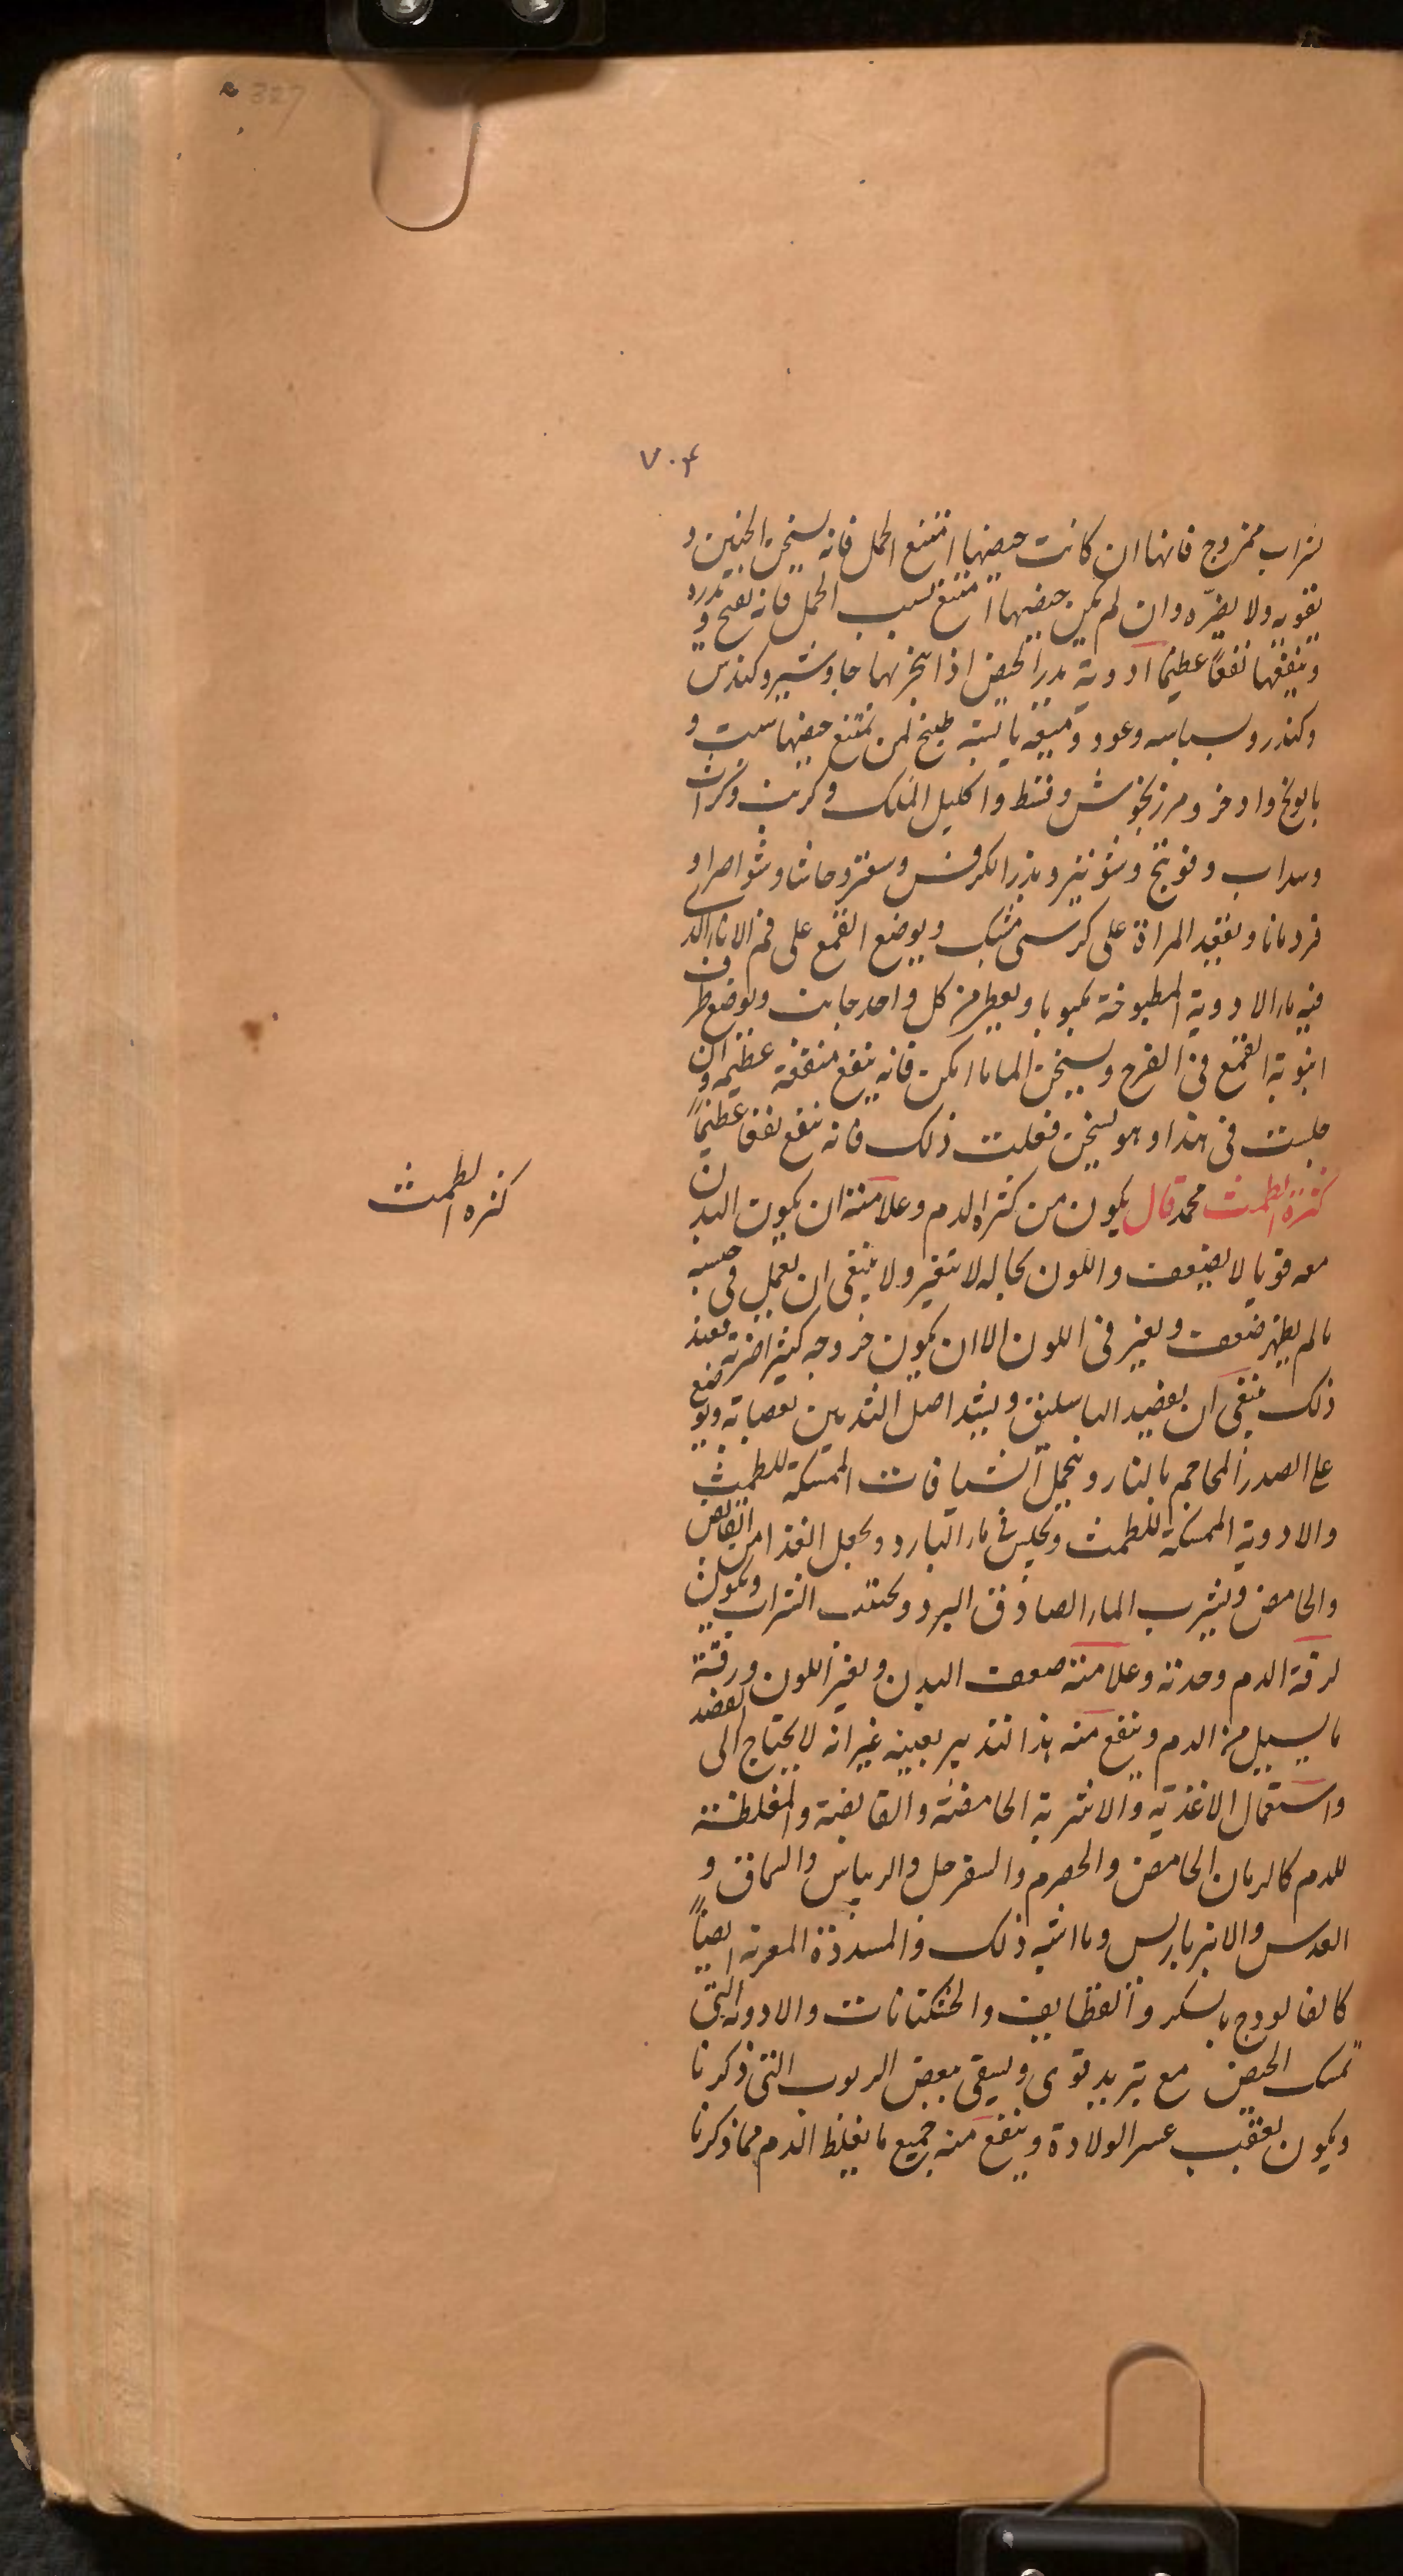 327
٧٠٤
شراب ممزوج فانها ان كانت حيضها امتنع الحمل فانه يسخن الجنين و
يقويه ولا يضرّه وان لم يكن حيضها امتنع بسبب الحمل فانه يفتح و يدره
وينفعها نفعاً عظيما ادوية يدر الحيض اذا بخر بها جاوشير وكندس
وكندر وبسباسه وعود وميعه يابسة طبيخ لمن يمتنع حيضها شبت و
بابونج واذخر ومرزنجوش وقسط واكليل الملك وكرنب وكراث
وسداب وفوتنج وشونيز وبزر الكرفس وسعتر وحاشا و
قردمانا ويقعد المراة على كرسى مشبك ويوضع القمع على فم الاناء الذى
فيه ماء الادوية المطبوخة مكبوبا ويغطى من كل واحد جانب ويوضع طرف
انبوبة القمع فى الفرج ويسخن الماء ما امكن فانه ينفع منفعة عظيمه وان
جلست فى هذا وهو يسخن فعلت ذلك فانه ينفع نفعا عظيماً
كثرة الطمث محمد قال يكون من كثرة الدم وعلامته ان يكون البدن
كثره الطمث
معه قويا لا يضعف واللون بحاله لا يتغير ولا ينبغى ان يعمل فى حبسه
ما لم يظهر ضعف وتغير فى اللون الا ان يكون خروجه كثيرا فعند
ذلك ينبغى ان يفصد الباسليق ويشد اصل الثديين بعصابة ويوضع
على الصدر المحاجم بالنار ويتحمل الشيافات الممسكة للطمث
والادوية الممسكة للطمث وتجلس فى ماء البارد ويجعل الغذا من القابض
والحامض ويشرب الماء الصادق البرد ويجتنب الشراب ويكون
لرقة الدم وحدته وعلامته ضعف البدن وتغير اللون ورقة
ما يسيل من الدم وينفع منه هذا التدبير بعينه غير انه لا يحتاج الى الفصد
واستعمال الاغذية والاشربة الحامضة والقابضة والمغلظة
للدم كالرمان الحامض والحصرم والسفرجل والريباس والسماق و
العدس والانبرباريس وما اشبه ذلك والمسددة المغرية ايضاً
كالفالوذج بالسكر والقطايف والخشكنانات والادوية التى
تمسك الحيض مع تبريد قوى ويسقى بعض الربوب التى ذكرنا
ويكون بعقب عسر الولادة وينفع منه جميع ما يغلظ الدم مما ذكرنا